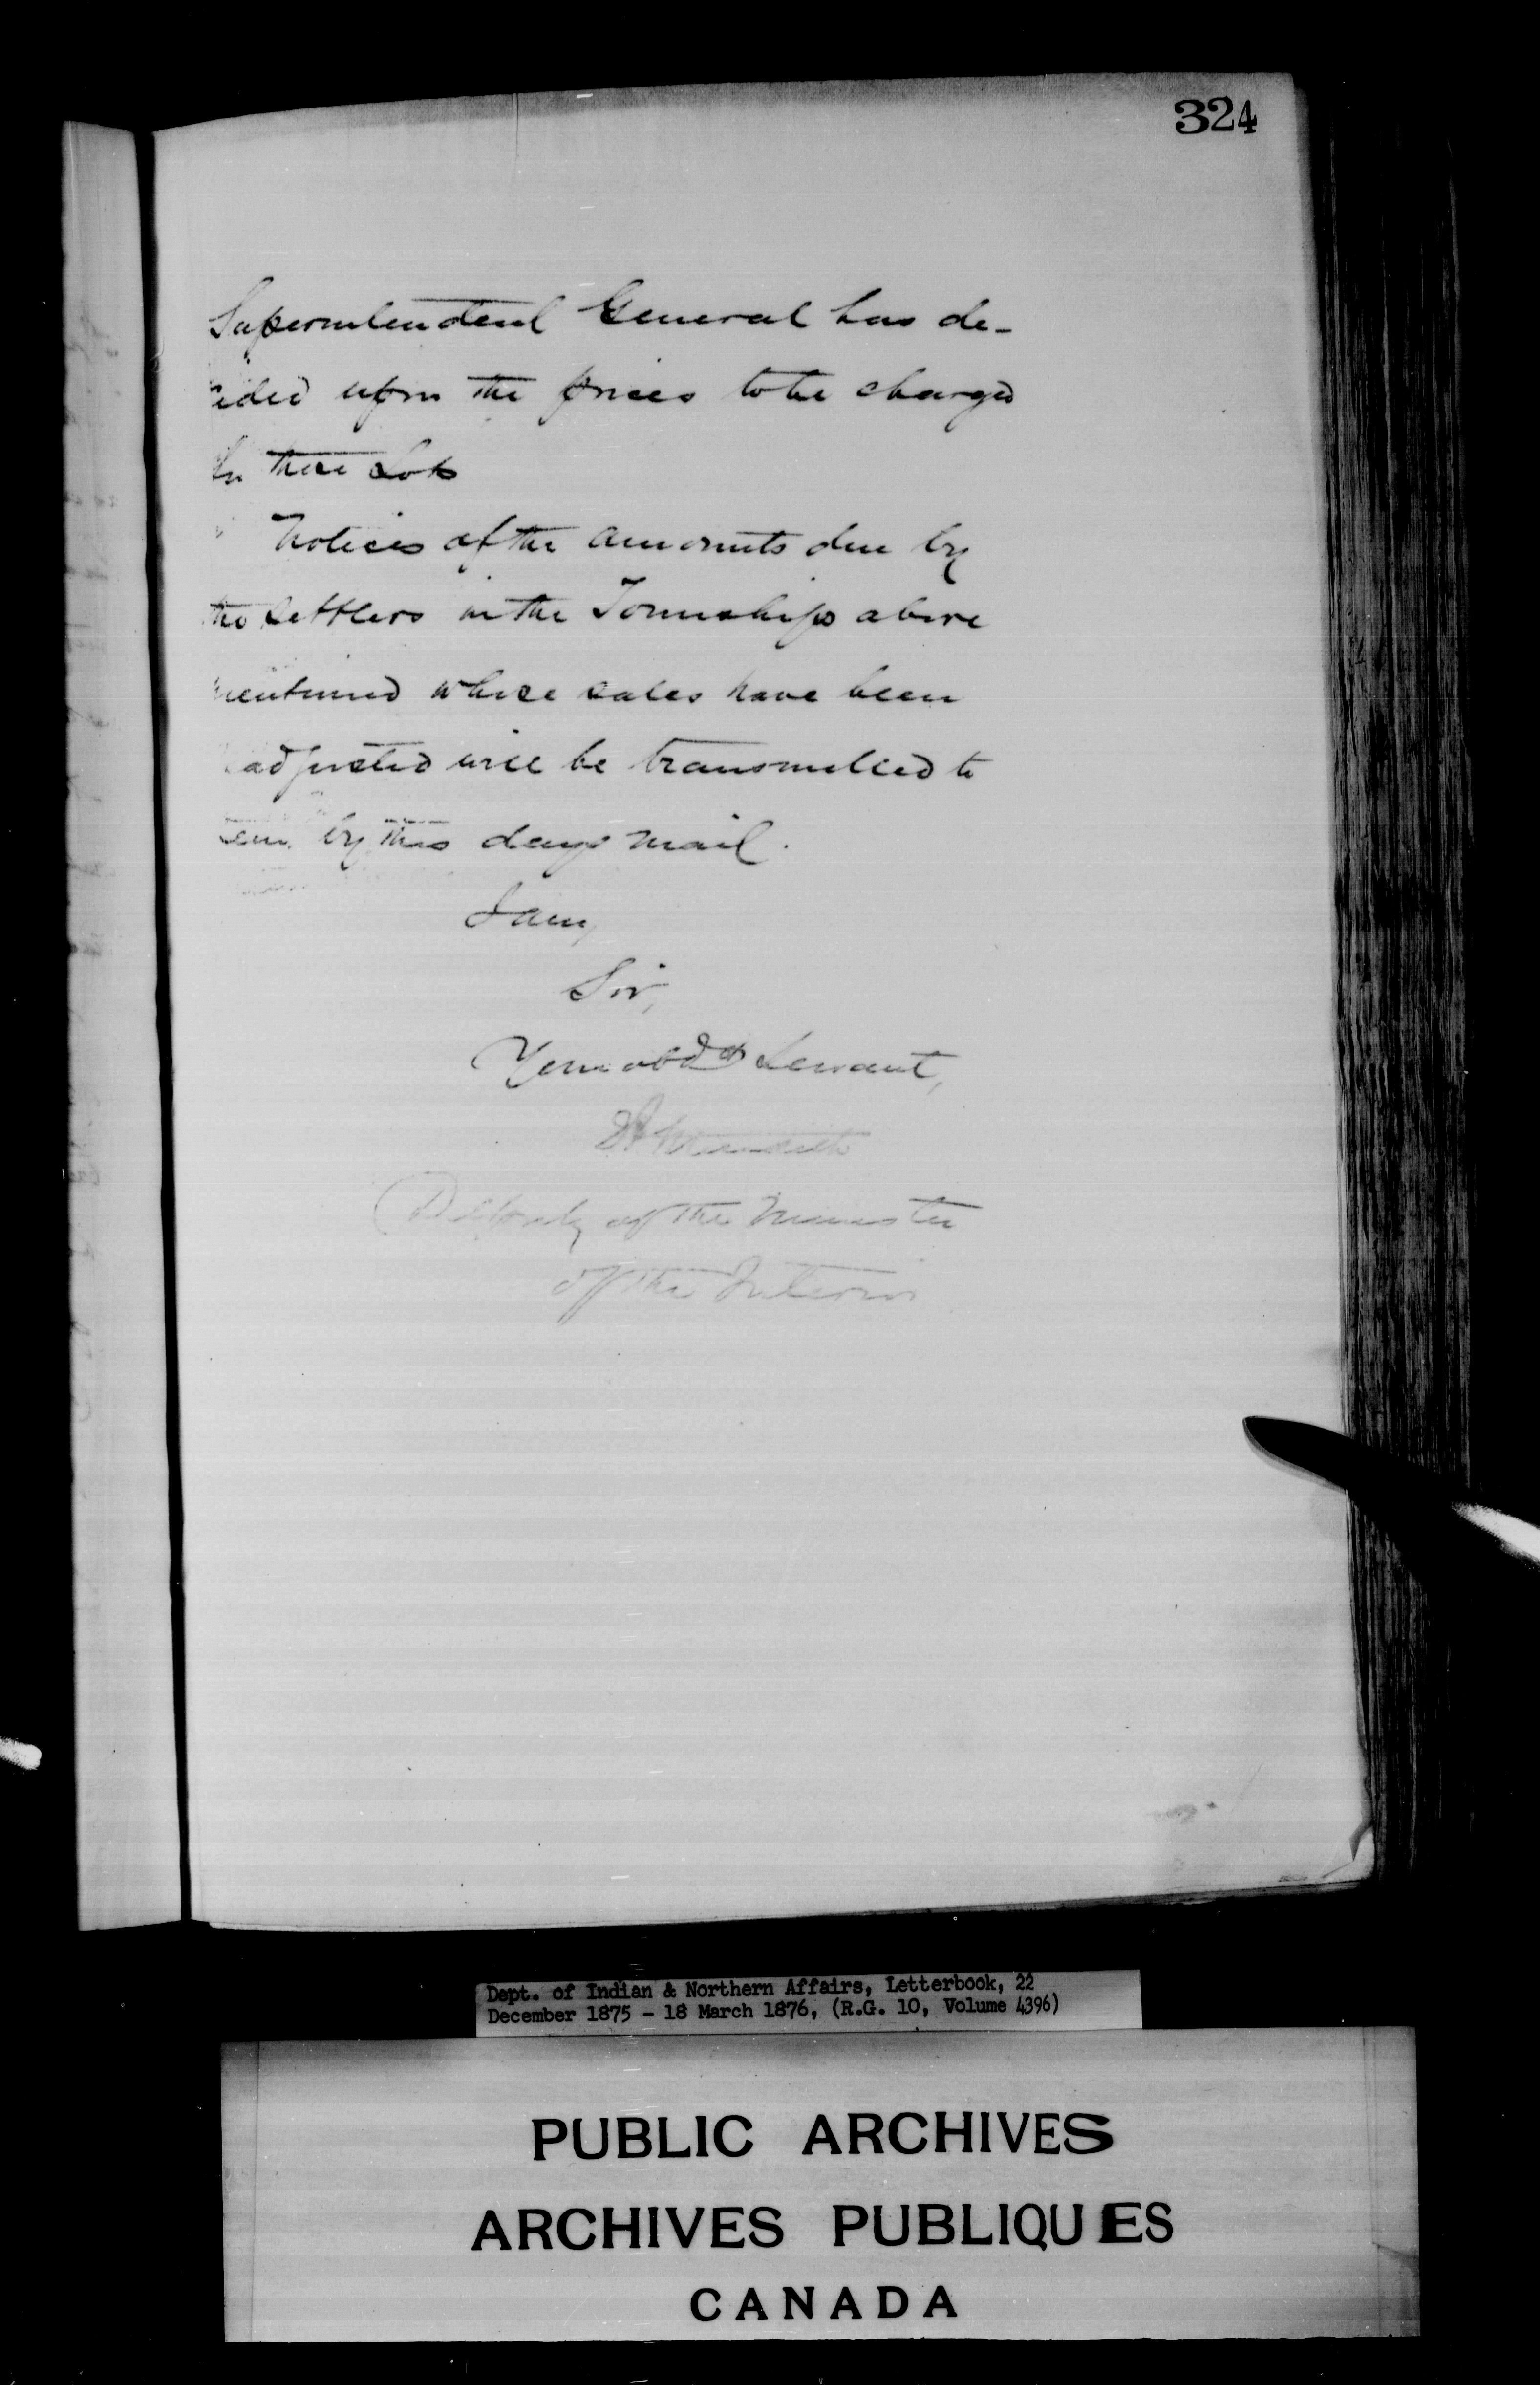 324
Superintendent General has de-
cided upon the prices to be charged
for these Lots
Notices of the amounts due by
the settlers in the Townships above
mentioned whose sales have been
readjusted will be transmitted to
them by this days mail.
I am,
Sir,
Your obdt Servant,
Meredith
Deputy of the Minister
of the Interior
Dept. of Indian & Northern Affairs, Letterbook, 22
December 1875 - 18 March 1876, (R.G. 10, Volume 4396)
PUBLIC ARCHIVES
ARCHIVES PUBLIQUES
CANADA